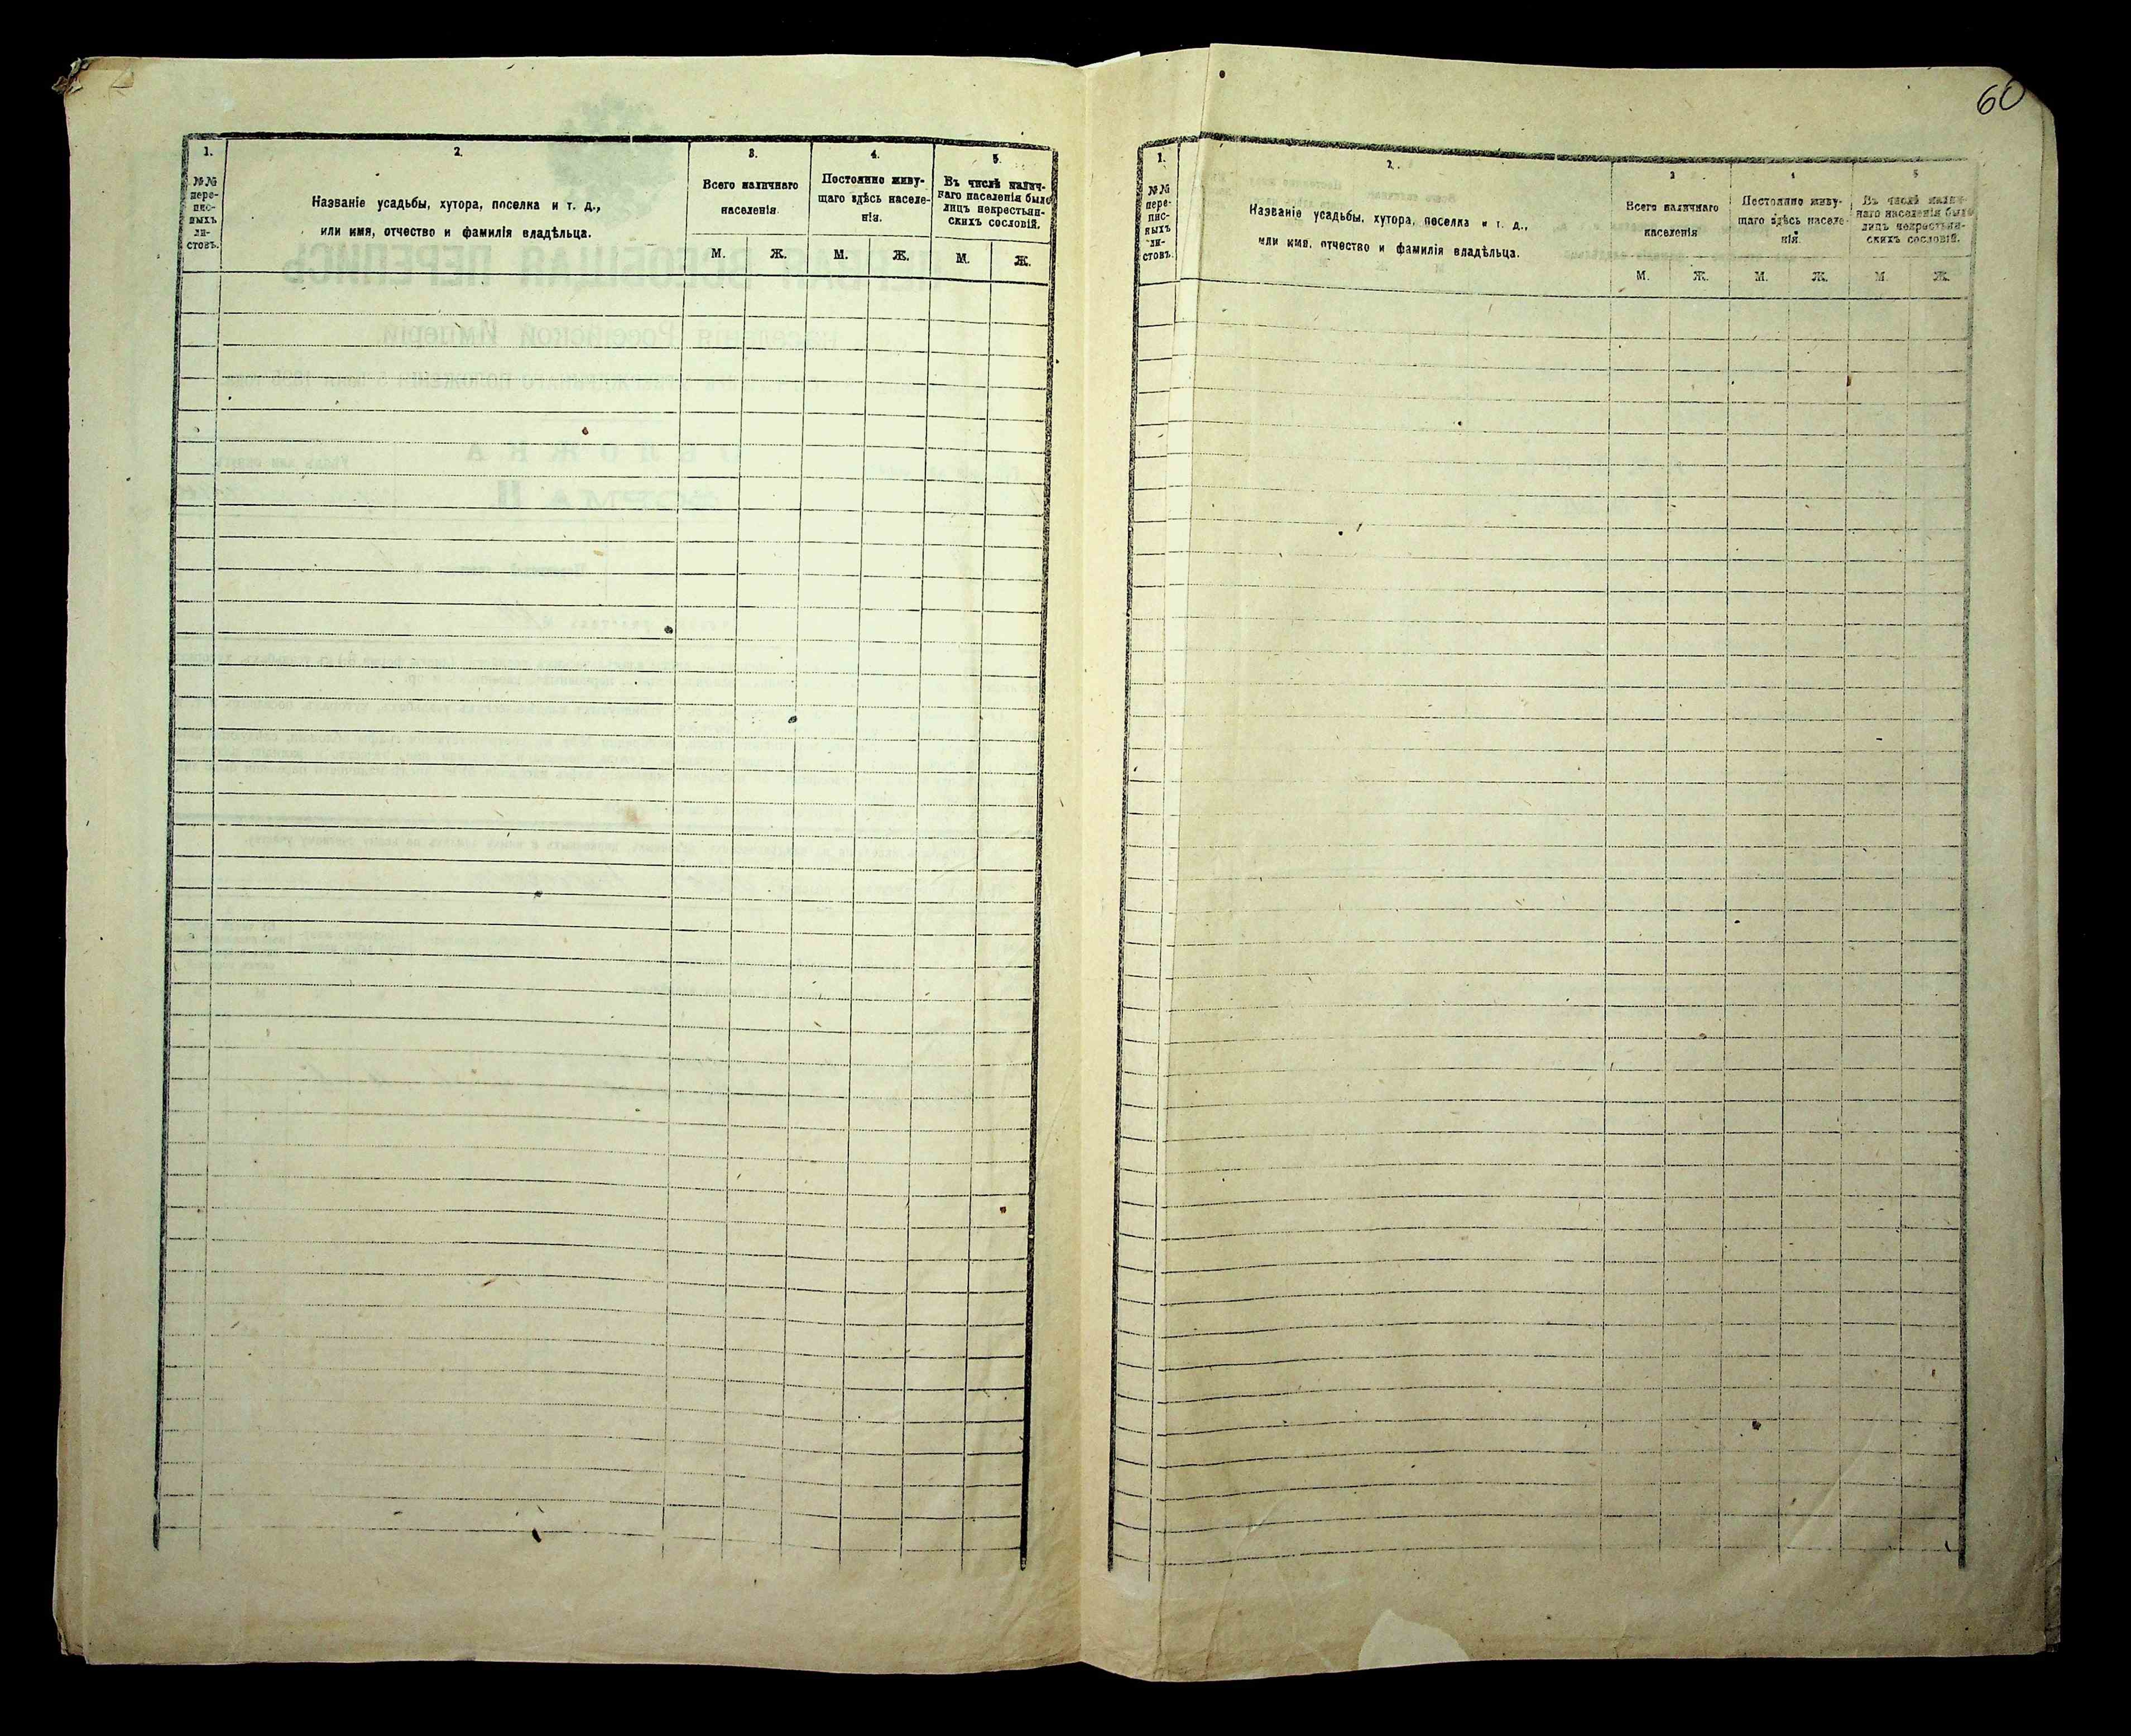 60
1.
№№
пере-
пис-
ныхъ
ли-
стовъ.
2.
Названіе усадьбы, хутора, поселка и т. д.,
или имя, отчество и фамилія владѣльца.
3.
Всего наличнаго
населенія.
М. Ж.
4.
Постоянно живу-
щаго здѣсь населе-
нія.
М. Ж.
5.
Въ числѣ налич-
наго населенія было
лицъ некрестьян-
скихъ сословій.
М. Ж.
1.
№№
пере-
пис-
ныхъ
ли-
стовъ.
2.
Названіе усадьбы, хутора, поселка и т. д.,
или имя, отчество и фамилія владѣльца.
3
Всего наличнаго
населенія
М. Ж.
4
Постоянно живу-
щаго здѣсь населе-
нія.
М. Ж.
5
Въ числѣ налич-
наго населенія было
лицъ некрестьян-
скихъ сословій.
М. Ж.